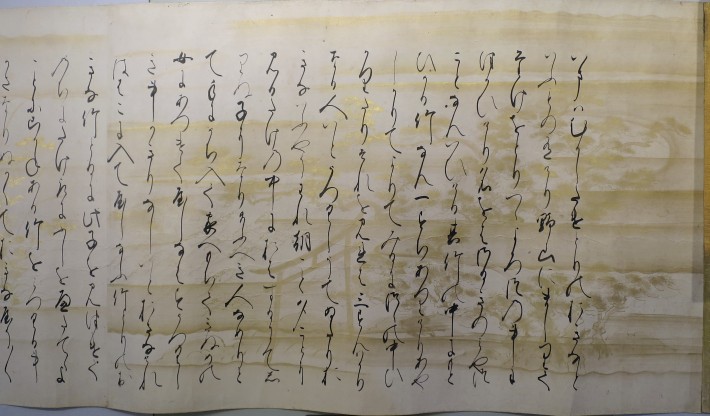 いまはむかしたけとりのおきなと
いふものありけり野山にましりて
たけをとりつゝよろつの事に
つかひけり名をはさぬきのみやつこ
となんいひける其竹の中にもと
ひかる竹なん一すちありけりあや
しかりてよりてみるにつゝの中ひ
かりたりそれを見れは三すんはかり
なる人いとうつくしうてゐたりお
きないふやうわれ朝こと夕ことに
見るたけの中におはするにてし
りぬ子になり給へき人なめりと
て手にうち入て家へもちてきぬめの
女にあつけてやしなはすうつくし
き事かきりなしいとおさなけれ
ははこに入てやしなふ竹とりのお
きな竹とるに此子を見つけて
のちにたけとるにふしをへたてゝよ
ことにこかねある竹を見つくる事
かさなりぬかくておきなやう〳〵